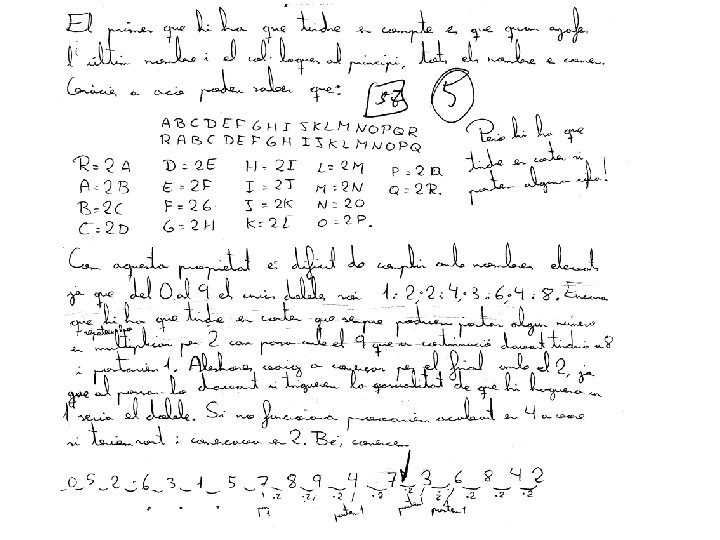 El primer que hi ha que tindre en compte es que quan agafe
l'últim nombre i el col·loques al principi, tots els nombre e canvi.
Gràcies a açò podem saber que: 58 5
A B C D E F G H I J K L M N O P Q R
R A B C D E F G H I J K L M N O P Q
Però hi ha que
tindre en conta si
portem alguna xifra!
R=2A D=2E H=2I L=2M P=2Q
A=2B E=2F I=2J M=2N Q=2R.
B=2C F=2G J=2K N=2O
C=2D G=2H K=2L O=2P.
Com aquesta propietat es dificil de complir amb nombres elevats
ja que del 0 al 9 el unics dobles son 1:2, 2:4, 3:6, 4:8. Encara
que hi ha que tindre en conter que sempre podriem portar algun número
per exemple
en multiplicar per 2 com passa amb el 9 que a continuació davant tindria 8
i portariem 1. Aleshores vaig a començar per el final amb el 2, ja
que al passar-lo davant si tinguerem la de que hi haguera un
1 seria el doble. Si no funcionara provariem acabant en 4 a vore
si teniem sort i començava en 2. Bé, comence.
0 5 2 6 3 1 5 7 8 9 4 7 3 6 8 4 2
·2 ·2 ·2 ·2 ·2 ·2 ·2 ·2 ·2
17 porte 1 porte 1 porte 1